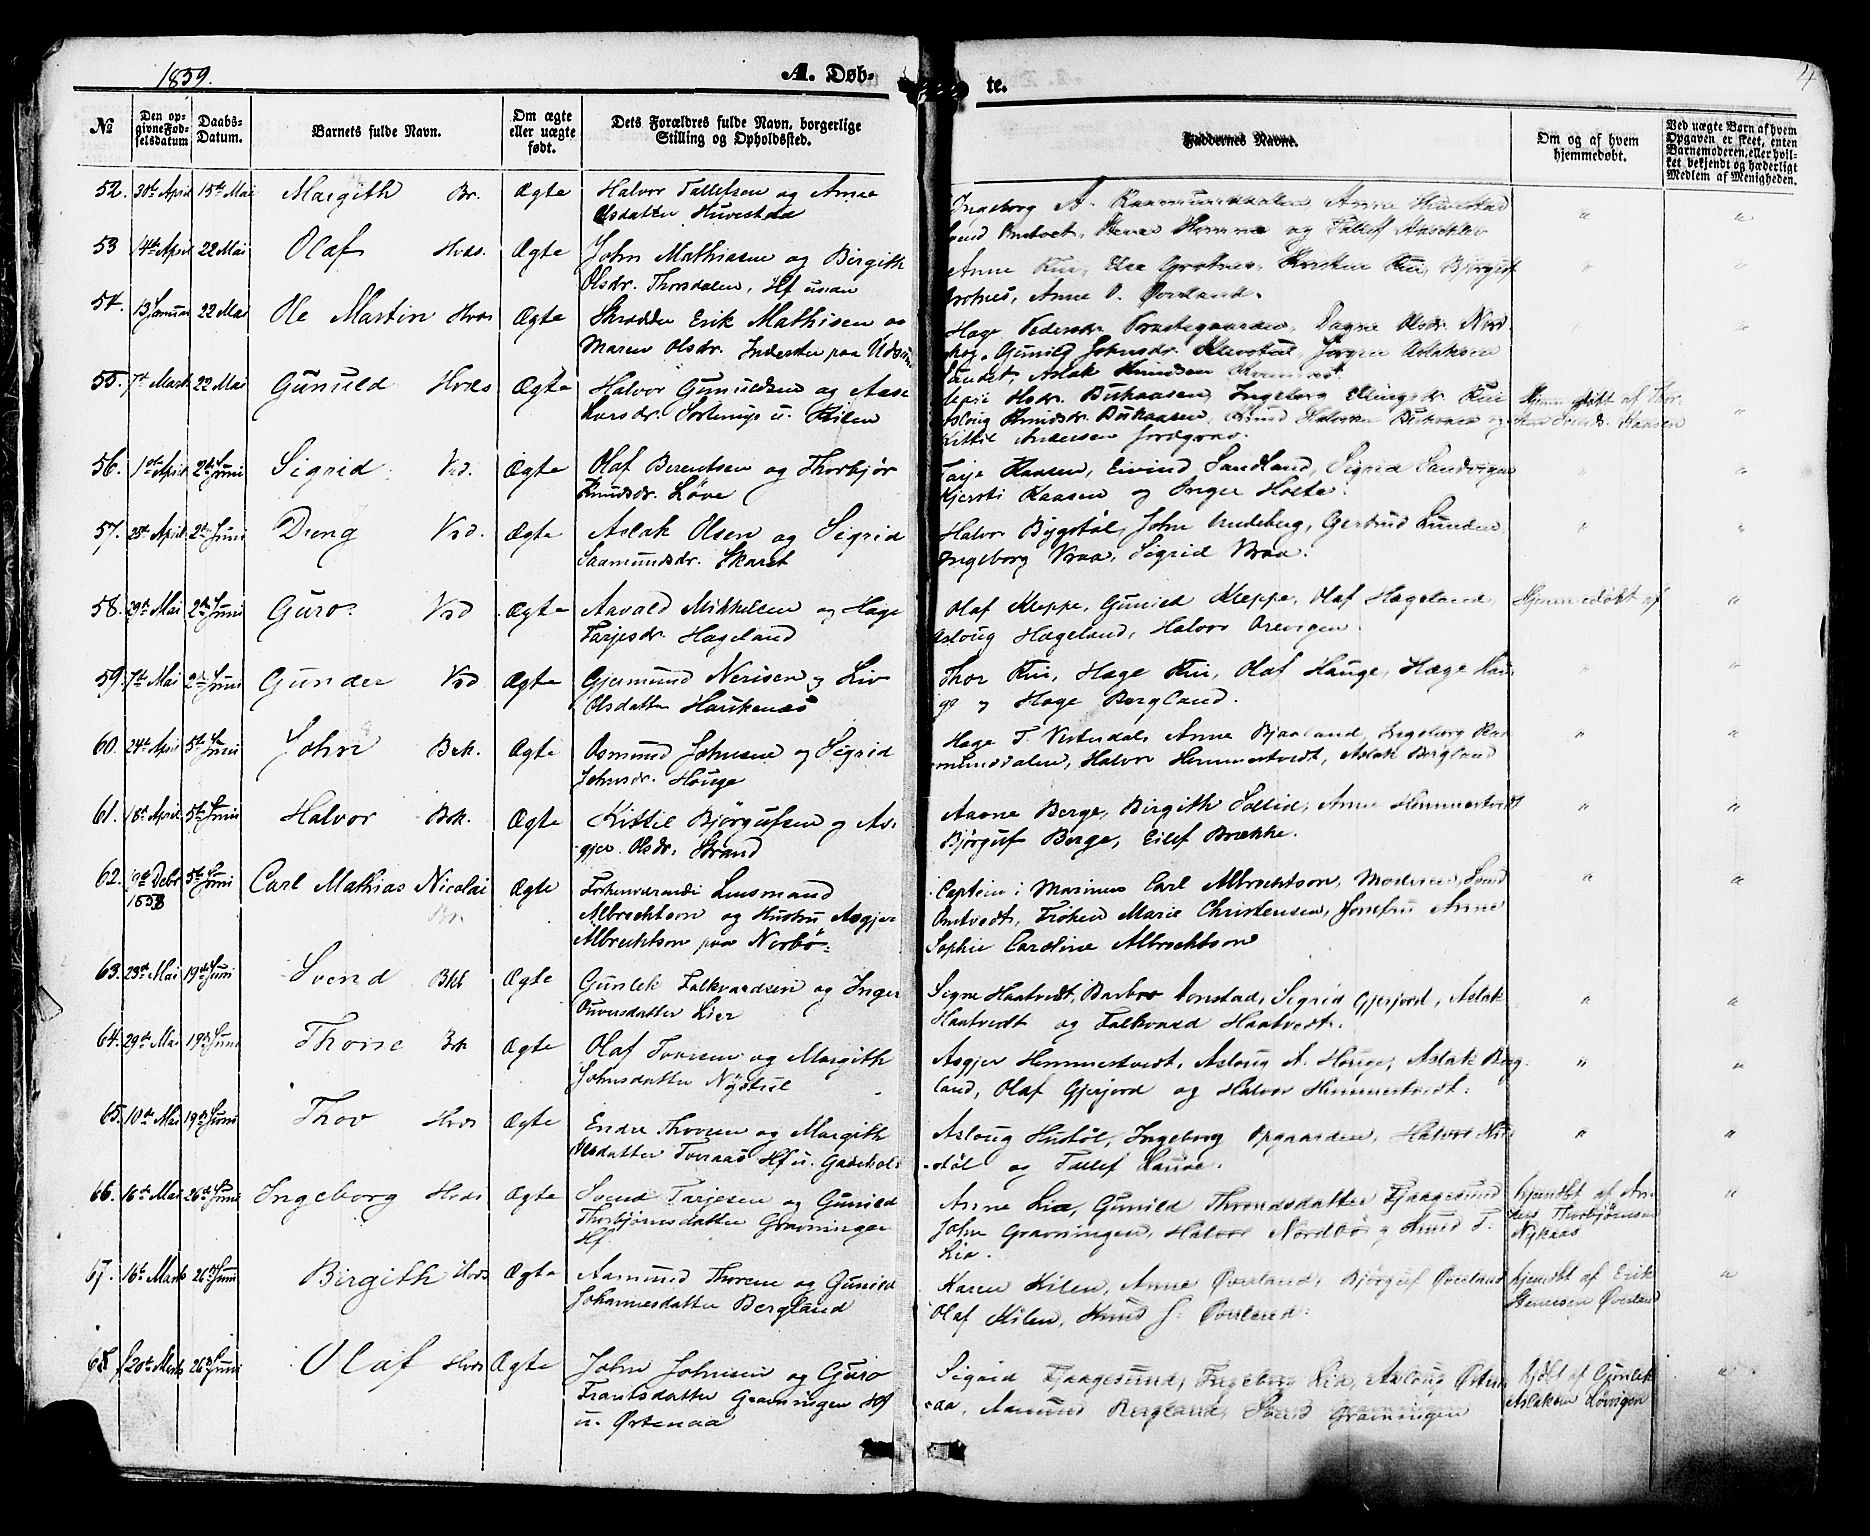 1859.
A. Døb-
te.
4
№
Den opgivne Fødselsdatum
Daabs-Datum.
Barnets fulde Navn.
Om ægte eller uægte født.
Dets Forældres fulde Navn, borgerlige Stilling og Opholdssted.
Faddernes Navne.
Om og af hvem hjemmedøbt.
Ved uægte Børn af hvem Opgaven er skeet, enten Barnemoderen, eller hvilket bekjendt og hæderligt Medlem af Menigheden.
52. 30te April 15de Mai Margith Br. Ægte Halvor Tallefsen og Anne
Olsdatter Huvestad
Ingeborg A. Raamunddalen Anne Huvestad
Svend Omtvet, Homme og Tallef " "
53 14de April 22 Mai Olaf Hvds. Ægte John Mathiasen og Birgith
Olsdr. Thorsdalen, Hf uden
Anne Kui, Else Grotnes, Kristen Kui, Bjørguf
Grotnes, Anne O. Øverland. " "
54. 13 Januar 22 Mai Ole Martin Hvds Ægte Skrædder Erik Mathisen og
Maren Olsdr. Inderster paa
Hage Pedersdr. Præstegaarden, Dagne Olsdr. Nord-
skog, Gunild Johnsdr. Jørgen Aslaksen
Sundet, Aslak Knudsen " "
55. 7de Marts 22 Mai Gunuld Hvids Ægte Halvor Gunuldsen og Aase
Iversdr. u. Kilen
Hsdr. Buhaasen, Ingeborg Ellingsdr. Kui
Aslaug Knudsdr. Buhaasen, Knud Halvorsen Buhaasen og
Kittil Andersen Jordgrav.
Hjemmedøbt af Thor-
Haasen "
56. 1ste April 2de Juni Sigrid Vrd. Ægte Olaf Berentsen og Thorbjør
Knudsdr. Løve
Tarje Kaasen, Eivind Sandland, Sigrid Sandvigen
Kjersti Kaasen og Inger Holte. " "
57. 28de April 2de Juni Dreng Vrd. Ægte Aslak Olsen og Sigrid
Saamundsdr. Skaret
Halvor Bygstøl, John Gertrud Lunden
Ingeborg Vraa, Sigrid Vraa. " "
58. 29de Mai 2de Juni Guro Vrd Ægte Aavald Mikkelsen og Hage
Tarjesdr. Hægeland
Olaf Kleppe, Gunild Kleppe, Olaf Hægeland,
Aslaug Hægeland, Halvor Orevigen
Hjemmedøbt af "
59. 7de Mai 2de Juni Gunder Vrd Ægte Gjermund Nerisen og Liv
Olsdatter Haukenæs
Thor Kui, Hage Kui, Olaf Hauge, Hæge Hau-
ge og Hage Bergland. " "
60. 24de April 5te Juni John Bek. Ægte Osmund Johnsen og Sigrid
Johnsdr. Houge
Hage T. Vesterdal, Anne Bjaaland, Ingeborg Raa-
munddalen, Halvor Hemmestvedt, Aslak Bergland " "
61. 18de April 5te Juni Halvor Bek. Ægte Kittil Bjørgufsen og As-
gjer Olsdr. Strand
Aavne Berge, Birgith Sollid, Anne Hemmestvedt
Bjørguf Berge, Eilef Brække. " "
62. Debr 1858 5te Juni Carl Mathias Nicolai Br. Ægte Forhenværende Lensmand
Albrechtson og Hustru Asgjer
Albrechtson paa Norbø.
Captein i Marinen Carl Albrechtson, Moderen, Svend
Omtvedt, Frøken Marie Christensen, Jomfru Anne
Sophie Caroline Albrechtson " "
63. 23de Mai 19de Juni Svend Bkk Ægte Gunlek Falkvardsen og Inger
Ouversdatter Lier
Signe Haatvedt, Barbro Sigrid Gjerjord, Aslak
Haatvedt og Falkvard Haatvedt. " "
64. 29de Mai 19de Juni Thone Bk Ægte Olaf Tovesen og Margith
Johnsdatter Nystuel
Asgjer Hemmestvedt, Aslaug A. Houge, Aslak Berg-
land, Olaf Gjerjord og Halvor Hemmestvedt. " "
65. 10de Mai 19de Juni Thov Hvds Ægte Endre Thovsen og Margith
Olsdatter Tveraas Hf u.
Aslaug Hustøl, Ingeborg Opgaarden, Halvor Hu-
støl og Tallef Hauge. " "
66. 16de Mai 26de Juni Ingeborg Hvds Ægte Svend Tarjesen og Gunild
Thorbjørnsdatter Graveningen
Hf
Anne Lia, Gunild Throndsdatter Fjaagesund
John Gravningen, Halvor Nordbø og Knud T.
Lia.
hjemdbt af An-
ders Thorbjørnsen
Nykaas "
67. 16de Marts 26de Juni Birgith Hvds Ægte Aasmund Thorsen og Gunild
Johannesdatter Bergland
Karen Kilen, Anne Øverland, Bjørguf Øverland
Olaf Kilen, Knud J. Øverland.
hjemdbt af Erik
Stenersen Øverland "
68. 20de Marts 26de Juni Olaf Hvds Ægte John Johnsen og Guro
Frantsdatter Gravningen Hf
u. Østenaa
Sigrid Fjaagesund, Ingeborg Lia, Aslaug Østen-
aa, Aasmund Bergland, Svend Gravningen
hjdbt af Gunlek
Aslaksen Løvigen "